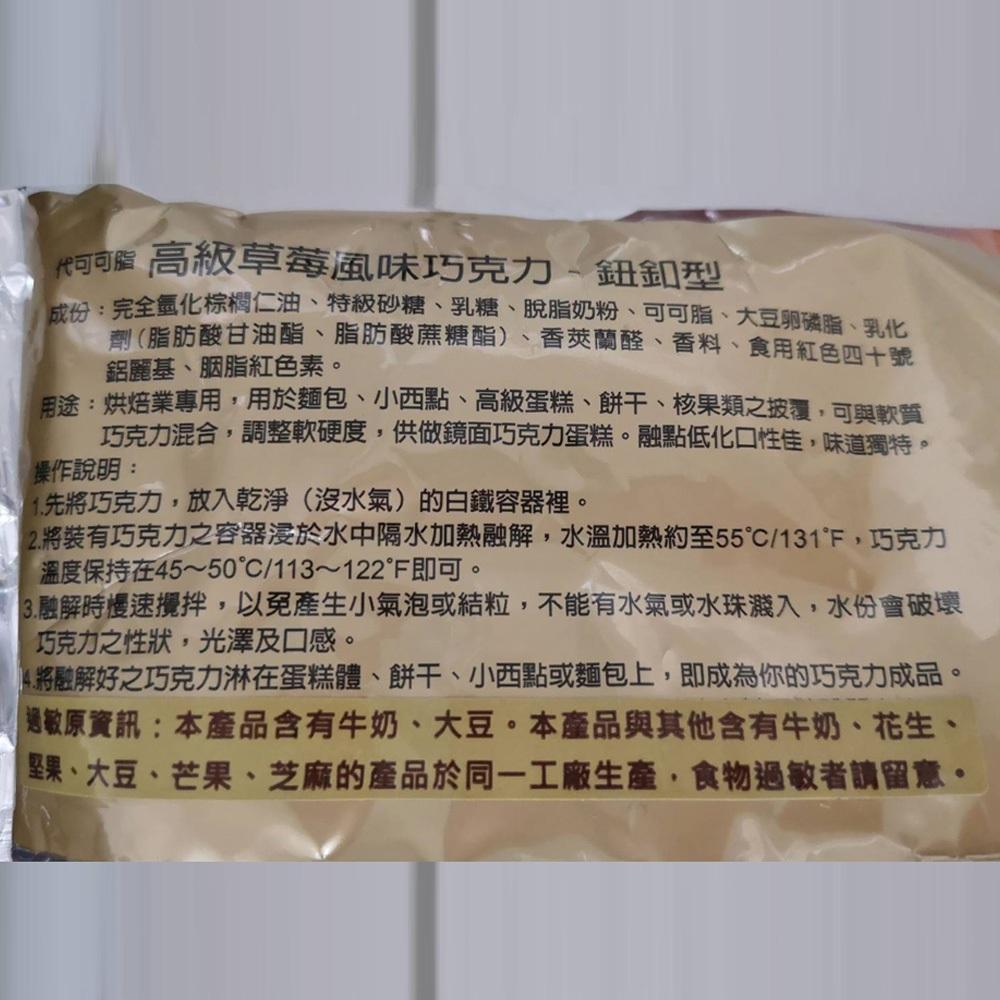 代可可脂 高級草莓風味巧克力 - 鈕釦型
成份：完全氫化棕櫚仁油、特級砂糖、乳糖、脫脂奶粉、可可脂、大豆卵磷脂、乳化
劑(脂肪酸甘油酯、脂肪酸蔗糖酯)、香莢蘭醛、香料、食用紅色四十號
鋁麗基、胭脂紅色素。
用途：烘焙業專用，用於麵包、小西點、高級蛋糕、餅干、核果類之披覆，可與軟質
巧克力混合，調整軟硬度，供做鏡面巧克力蛋糕。融點低化口性佳，味道獨特。
操作說明：
1.先將巧克力，放入乾淨（沒水氣）的白鐵容器裡。
2.將裝有巧克力之容器浸於水中隔水加熱融解，水溫加熱約至55°C/131°F，巧克力
溫度保持在45～50°C/113～122°F即可。
3.融解時慢速攪拌，以免產生小氣泡或結粒，不能有水氣或水珠濺入，水份會破壞
巧克力之性狀，光澤及口感。
4.將融解好之巧克力淋在蛋糕體、餅干、小西點或麵包上，即成為你的巧克力成品。
過敏原資訊：本產品含有牛奶、大豆。本產品與其他含有牛奶、花生、
堅果、大豆、芒果、芝麻的產品於同一工廠生產，食物過敏者請留意。